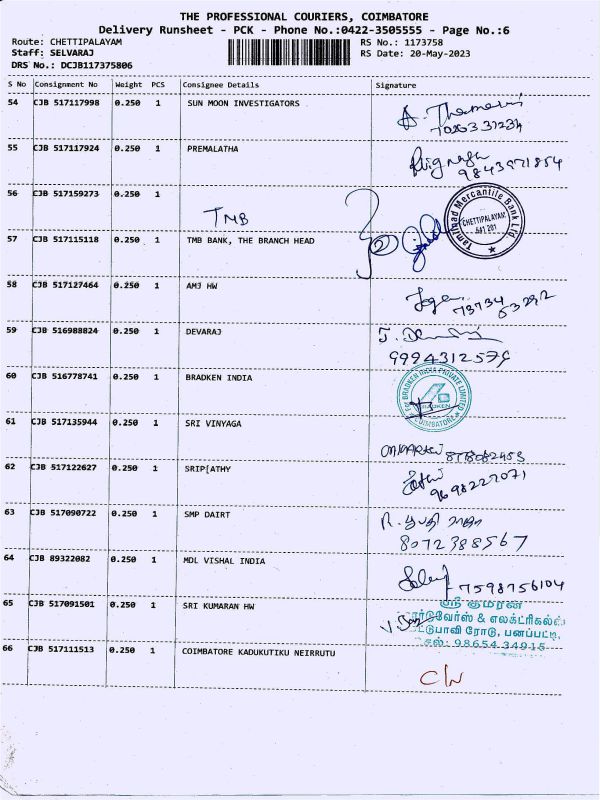 THE PROFESSIONAL COURIERS, COIMBATORE
Delivery Runsheet - PCK - Phone No.:0422-3505555 - Page No.:6
Route: CHETTIPALAYAM
Staff: SELVARAJ
DRS No.: DCJB117375806
RS No.: 1173758
RS Date: 20-May-2023
S No Consignment No Weight PCS Consignee Details Signature
54 CJB 517117998 0.250 1 SUN MOON INVESTIGATORS
55 CJB 517117924 0.250 1 PREMALATHA
9843971854
56 CJB 517159273 0.250 1
TMB
Tamilnad Mercantile Bank Ltd
CHETTIPALAYAM
641 201
57 CJB 517115118 0.250 1 TMB BANK, THE BRANCH HEAD
58 CJB 517127464 0.250 1 AMJ HW
73734 63292
59 CJB 516988824 0.250 1 DEVARAJ
9994312579
60 CJB 516778741 0.250 1 BRADKEN INDIA
For BRADKEN INDIA PRIVATE LIMITED
BRADKEN
COIMBATORE
61 CJB 517135944 0.250 1 SRI VINYAGA
62 CJB 517122627 0.250 1 SRIP[ATHY
9698227071
63 CJB 517090722 0.250 1 SMP DAIRT
8072388567
64 CJB 89322082 0.250 1 MDL VISHAL INDIA
7598756104
65 CJB 517091501 0.250 1 SRI KUMARAN HW
ஸ்ரீ குமரன்
& எலக்ட்ரிகல்ஸ்
ரோடு, பனப்பட்டி,
செல்: 98654 34915
66 CJB 517111513 0.250 1 COIMBATORE KADUKUTIKU NEIRRUTU